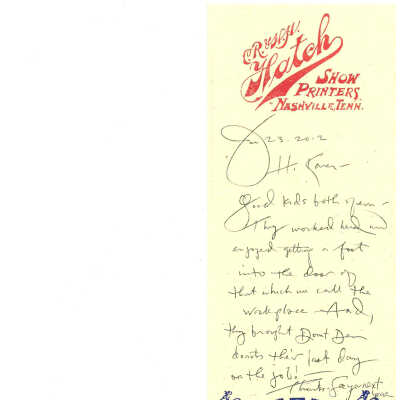 CR & W.H.
Hatch
SHOW
PRINTERS
NASHVILLE, TENN.
Jan 23. 2012
Hi Karen –
Good kids both of 'em –
They worked hard and
enjoyed getting a foot
into the door of
that which we call the
workplace – And,
they brought Dont Den
donuts their last day
on the job!
Thanks – See ya next
year